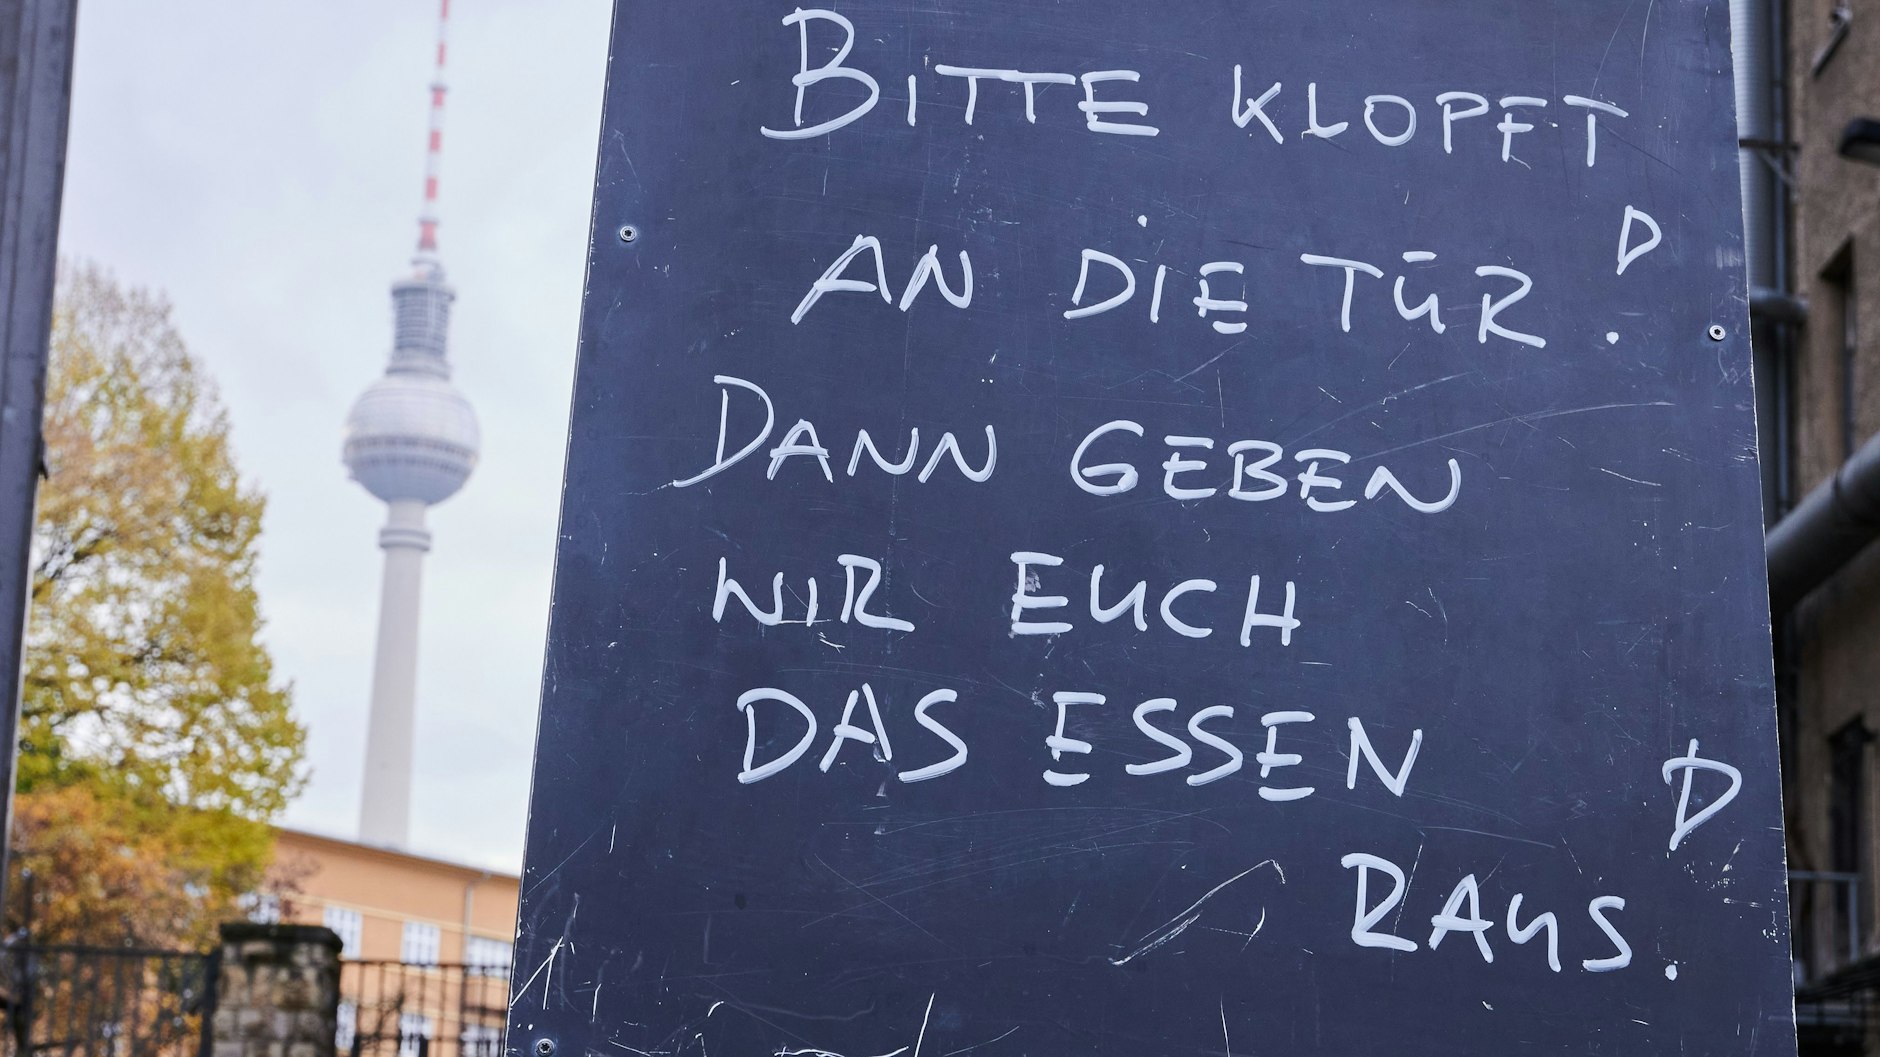 BITTE KLOPFT
AN DIE TÜR!
DANN GEBEN
WIR EUCH
DAS ESSEN
RAUS!